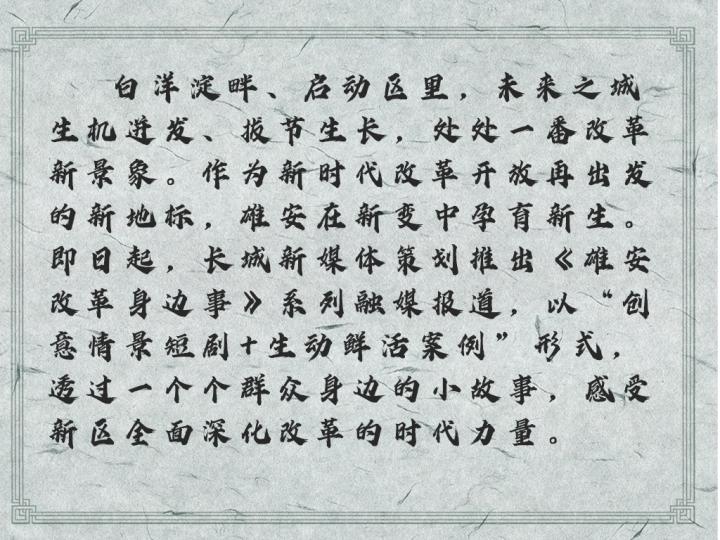 白洋淀畔、启动区里，未来之城
生机迸发、拔节生长，处处一番改革
新景象。作为新时代改革开放再出发
的新地标，雄安在新变中孕育新生。
即日起，长城新媒体策划推出《雄安
改革身边事》系列融媒报道，以“创
意情景短剧+生动鲜活案例”形式，
透过一个个群众身边的小故事，感受
新区全面深化改革的时代力量。